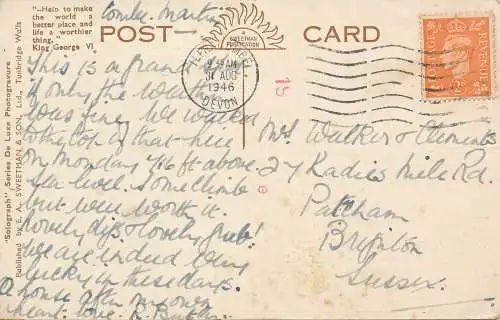 "—Help to make
the world a
better place and
life a worthier
thing."
King George VI
"Solograph" Series De Luxe Photogravure
Published by E. A. SWEETMAN & SON, Ltd., Tunbridge Wells
POST
CARD
A
SWEETMAN
PUBLICATION
9:15AM
31 AUG
1946
DEVON
POSTAGE
REVENUE
19
Combe Martin
This is a grand
if only the weather
was fine. We walked
to the top of that here
on Monday 716 ft above
sea level. Some climb
but well worth it.
lovely digs & lovely grub!
we are indeed very
lucky in these days.
a house after my own
heart. love. R.
Mrs Walker & Clements
27 Radies Mile Rd.
Patcham
Brighton
Sussex.